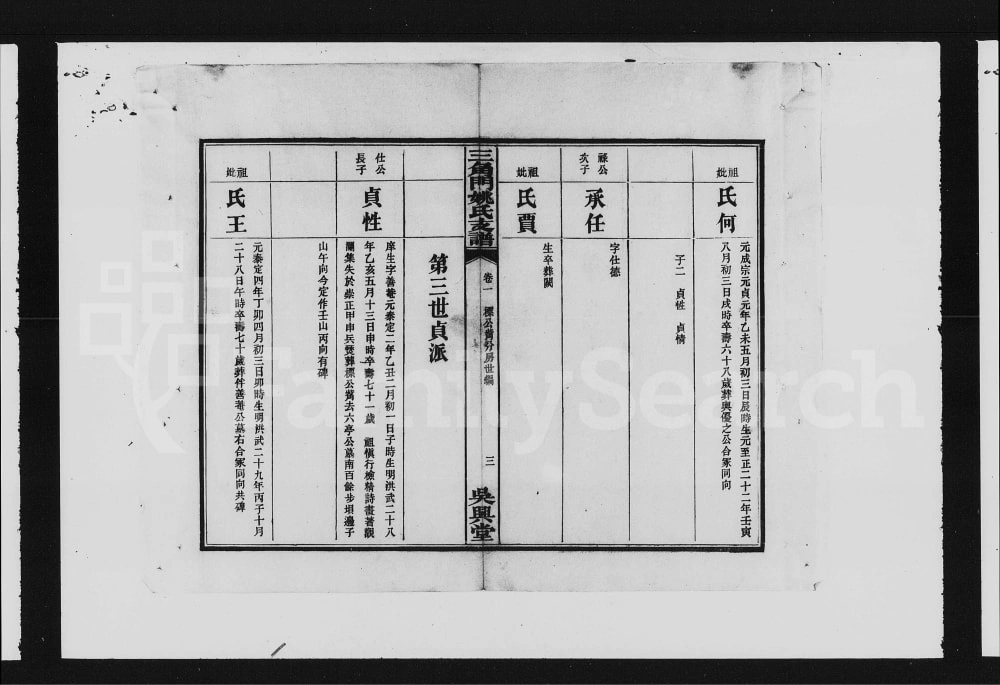 祖妣
何氏
元成宗元貞元年乙未五月初三日辰時生元至正二十二年壬寅
八月初三日戌時卒壽六十八歲葬與優之公合冢同向
子二 貞性 貞情
祿公
次子
承任
字仕德
祖妣
賈氏
生卒葬闕
三角門姚氏支譜
卷一
標公黨分房世編
三
吳興堂
第三世貞派
仕公
長子
貞性
庠生字善菴元泰定二年乙丑二月初一日子時生明洪武二十八
年乙亥五月十三日申時卒壽七十一歲 祖慎行檢精詩畫著觀
瀾集失於崇正甲申兵燹葬標公黨去六亭公墓南百餘步垻邊子
山午向今定作壬山丙向有碑
祖妣
王氏
元泰定四年丁卯四月初三日卯時生明洪武二十九年丙子十月
二十八日午時卒壽七十歲葬伴善菴公墓右合冢同向共碑
FamilySearch